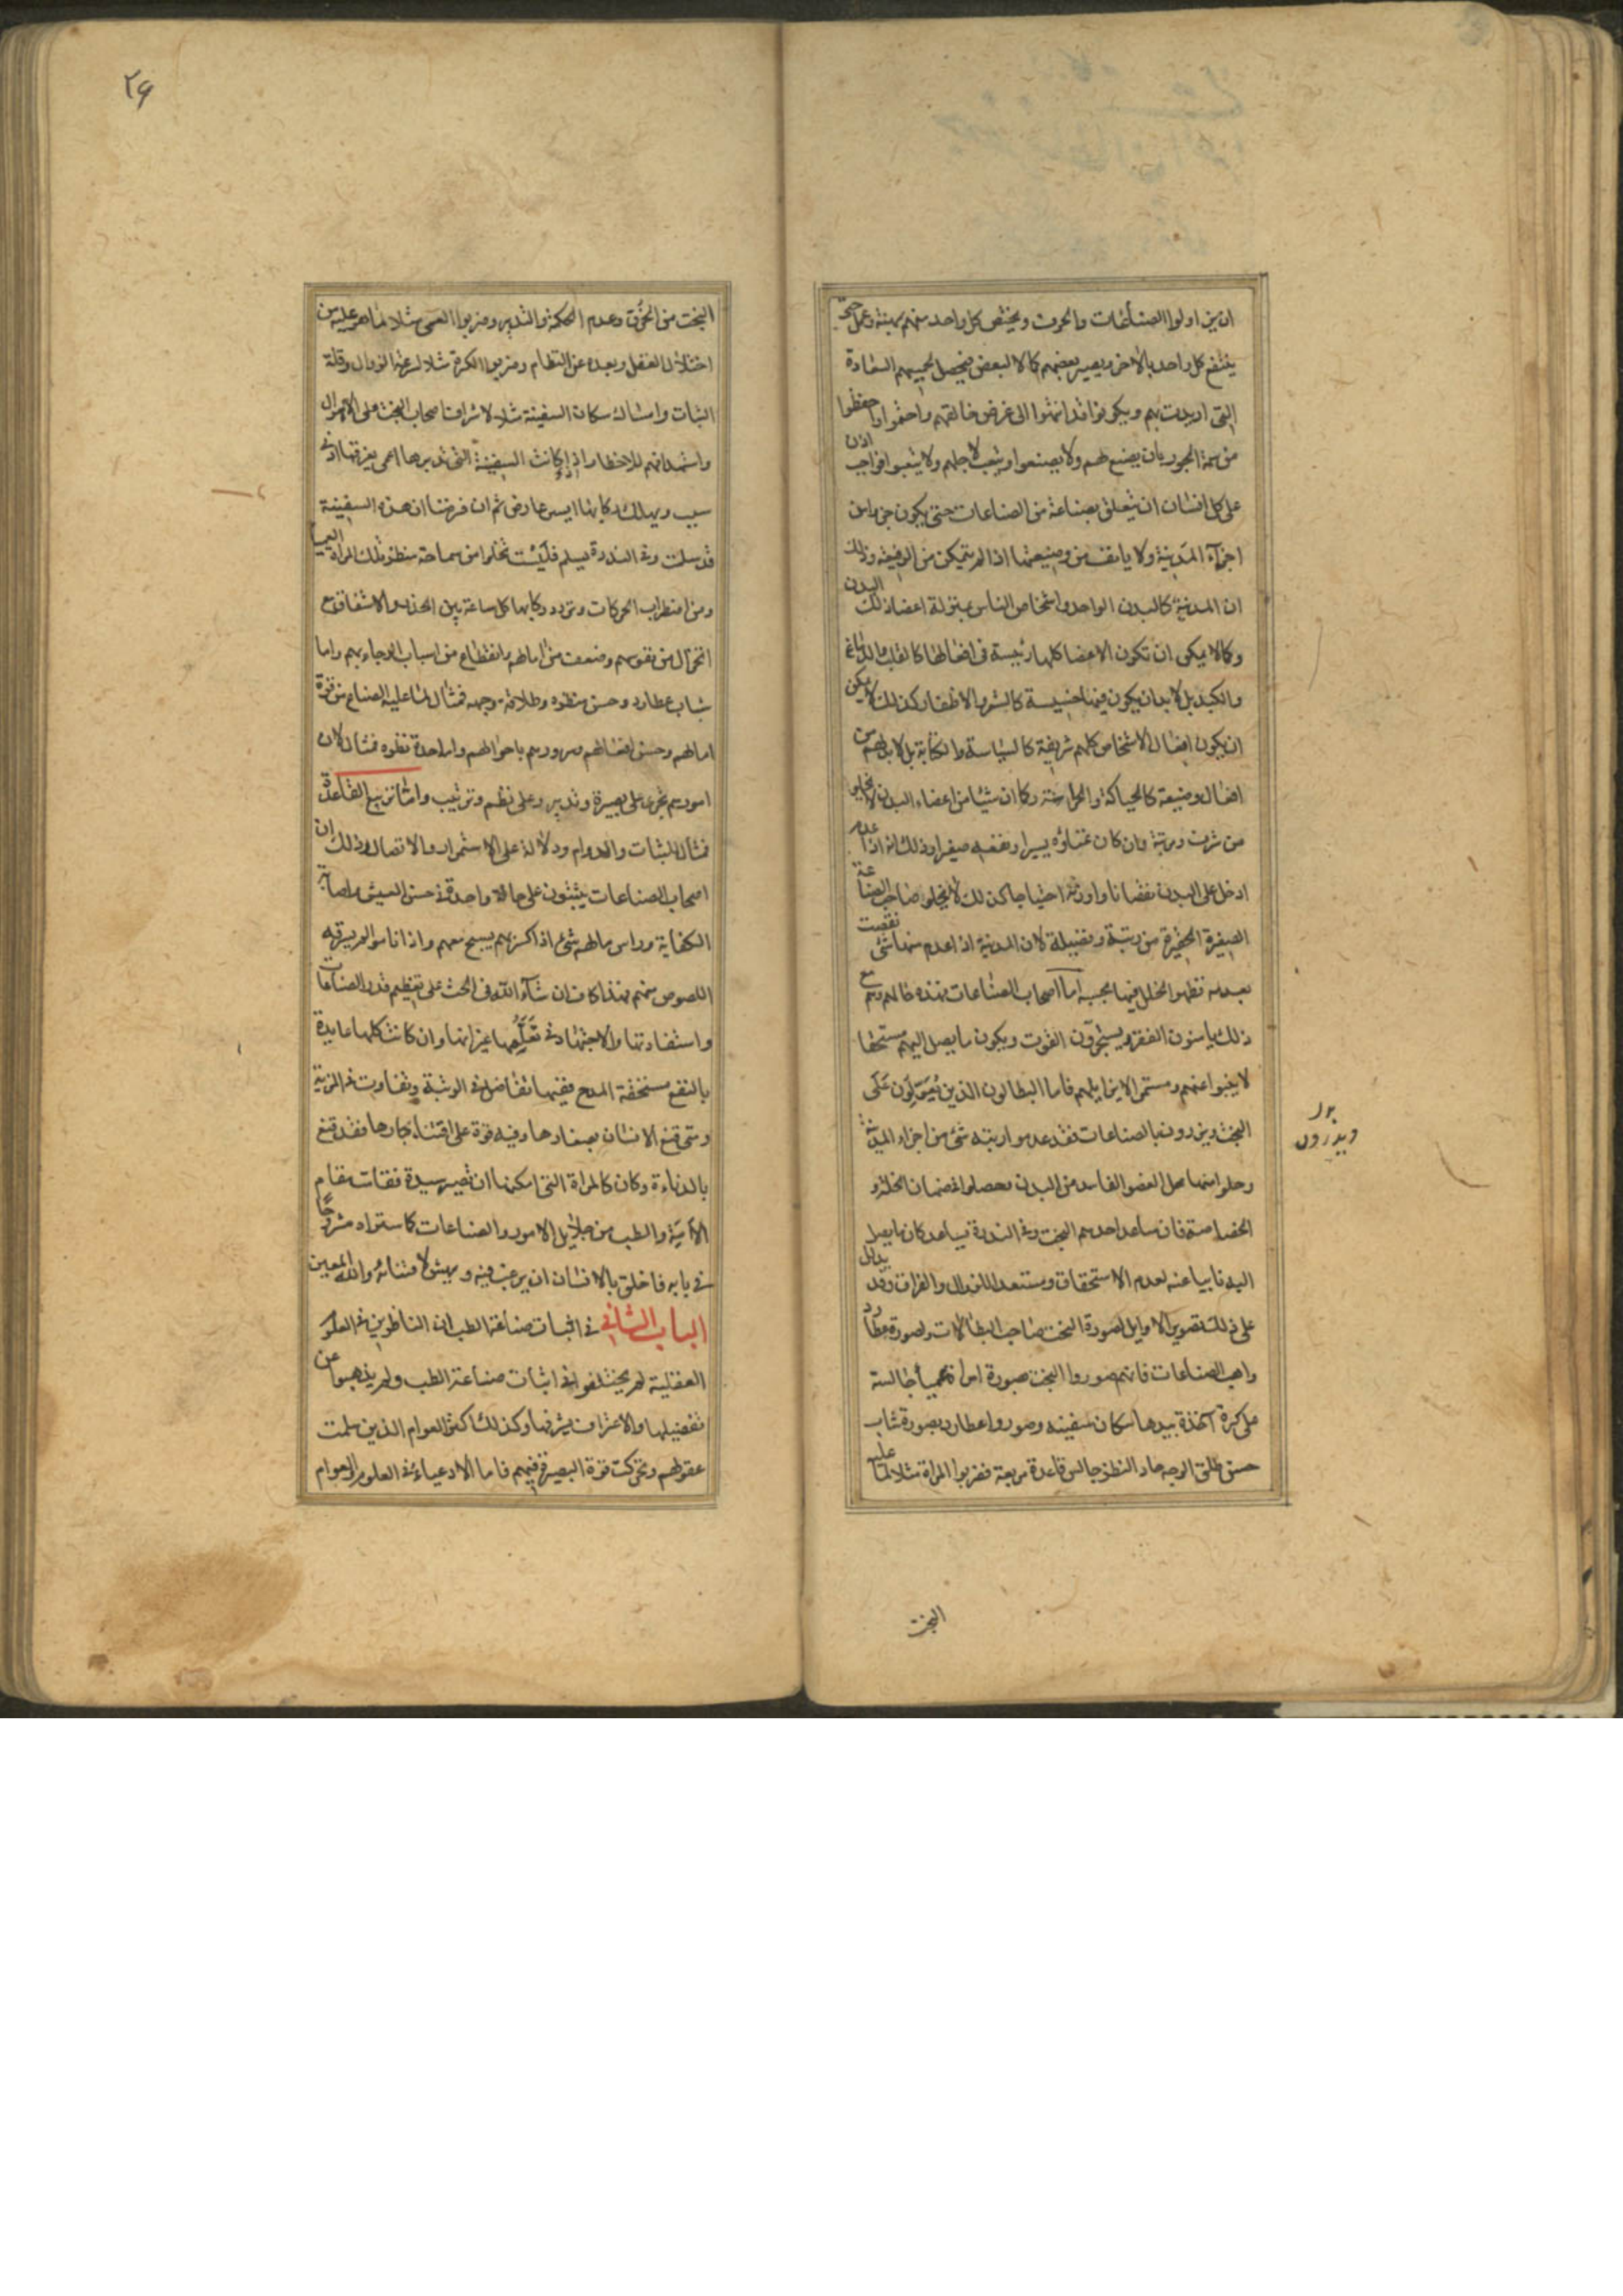 ان يزاولوا الصناعات والحرف ويختص كل واحد منهم بمهنة وعمل حتى
ينتفع كل واحد بالآخر ويصير بعضهم كالا لبعض فيحصل لجميعهم السعادة
التى اريدت بهم ويكونوا قد انتهوا الى غرض خالقهم واحفوا وحفظوا
من سمة الجور بان يصنع لهم ولا يصنعوا ويتعب لاجلهم ولا يتعبوا فواجب اذن
على كل انسان ان يتعلق بصناعة من الصناعات حتى يكون جزءا من
اجزآء المدينة ولا يانف من وضيعتها اذا لم يتمكن من الرفيعة وذلك
ان المدينة كالبدن الواحد واشخاص الناس بمنزلة اعضاء ذلك البدن
وكما لا يمكن ان تكون الاعضا كلها رئيسة فى افعالها كالقلب والدماغ
والكبد بل لا بد ان يكون فيها خسيسة كالشعر والاظفار كذلك لا يمكن
ان يكون افعال الاشخاص كلهم شريفة كالسياسة والكتابة بل لا بد لهم من
افعال وضيعة كالحياكة والحراسة وكما ان شيئا من اعضاء البدن لا يخلو
من شرف ومرتبة وان كان غناؤه يسيرا ونفعه صغيرا وذلك انه اذا عدم
ادخل على البدن نقصانا واورثه احتياجا كذلك لا يخلو صاحب الصناعة
الصغيرة الحقيرة من رتبة وفضيلة لان المدينة اذا عدم منها شئ نقصت
بعدمه فظهر الخلل فيها بحسبه اما اصحاب الصناعات فهذه حالهم وهم مع
ذلك يأمنون الفقر ويستجرون القوت ويكون ما يصل اليهم مستحقا
لا ينبوا عنهم ومستمرا لا يزايلهم فاما البطالون الذين يُعَوِّلون عَلَى
البخت ويزدرون بالصناعات فقد عدموا رتبة شئ من اجزاء المدينة
وحلوا منها محل العضو الفاسد من البدن فحصلوا فى ضمان الخلة و
الخصاصة فان ساعد احدهم البخت وفى الندرة يساعد كان ما يصل
اليه نابيا عنه لعدم الاستحقاق ومستعدا للزوال والفراق وقد يدلك
على ذلك تصوير الاوايل لصورة البخت صاحب البطالات ولصورة عطارد
واهب الصناعات فانهم صوروا البخت صورة امراة عمياء جالسة
على كرة آخذة بيدها سكان سفينة وصوروا عطارد بصورة شاب
حسن طلق الوجه حاد النظر جالس قاعدة مربعة فضربوا المراة مثلا لما عليه
البخت
بد
ويزدرون
٢٩
البخت من الخرق وعدم الحكمة والتدبير وضربوا العمى مثلا لما هو عليه من
اختلال العقل وبعده عن النظام وضربوا الكرة مثلا لسرعة الزوال وقلة
الثبات وامساك سكان السفينة مثلا لاشراف اصحاب البخت على الاهوال
واستهدافهم للاخطار اذا كانت السفينة التى تدبرها اعمى يغرقها ادنى
سبب ويهلك ركابها ايسر عارض ثم ان فرضنا ان هذه السفينة
قد سلمت وفى الندرة تسلم فَلَيْسَت تخلوا من سماحة منظر تلك المراة العميا
ومن اضطراب الحركات وتردد ركابها كل ساعة بين الحذر والاشفاق مع
انخزال من نفوسهم وضعف من امالهم وانقطاع من اسباب الرجاء بهم واما
شباب عطارد وحسن منظره وطلاقة وجهه فمثال لما عليه الصناع من قوة
امالهم وحسن افعالهم وسرورهم باحوالهم واما حدة نظره فمثال لان
امورهم تجرى على بصيرة وتدبير وعلى نظم وترتيب واما تربيع القاعدة
فمثال للثبات والدوام ودلالة على الاستمرار والاتصال وذلك ان
اصحاب الصناعات يثبتون على حالة واحدة فى حسن العيش واصابة
الكفاية وراس مالهم شئ اذا كسر بهم يسبح معهم واذا ناموا لم يسرقه
اللصوص منهم فهذا كاف ان شآء الله فى الحث على تعظيم قدر الصناعات
واستفادتها والاجتهاد فى تَعَلُّمِها غير انها وان كانت كلها عايدة
بالنفع مستحقة المدح ففيها تفاضل فى الرتبة وتفاوت فى المزية
ومتى قنع الانسان بصغارها وفيه قوة على اقتناء كبارها فقد قنع
بالدناءة وكان كالمراة التى امكنها ان تصير سيدة فقامت مقام
الامَةِ والطب من جلايل الامور والصناعات كما ستراه مشروحًا
فى بابه فاخلق بالانسان ان يرغب فيه ويهش لاقتنائه والله المعين
الباب الثانى فى اثبات صناعة الطب ان الناظرين فى العلوم
العقلية لم يختلفوا فى اثبات صناعة الطب ولم يذهبوا عن
تفضيلها والاعتراف بشرفها وكذلك اكثر العوام الذين سلمت
عقولهم وتحركت قوة البصيرة فيهم فاما الادعياء فى العلوم والعوام